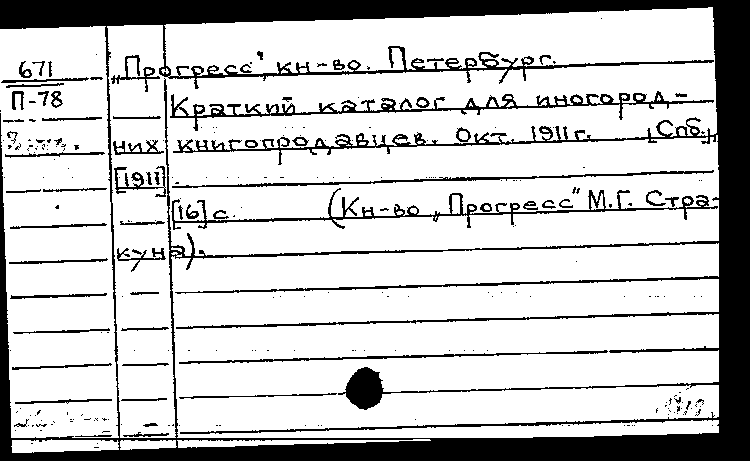 671
П-78
„Прогресс", кн-во. Петербург.
Краткий каталог для иногород-
них книгопродавцев. Окт. 1911 г. [Спб.,
[1911]
[16] с. (Кн-во „Прогресс" М.Г.Стра-
куна).